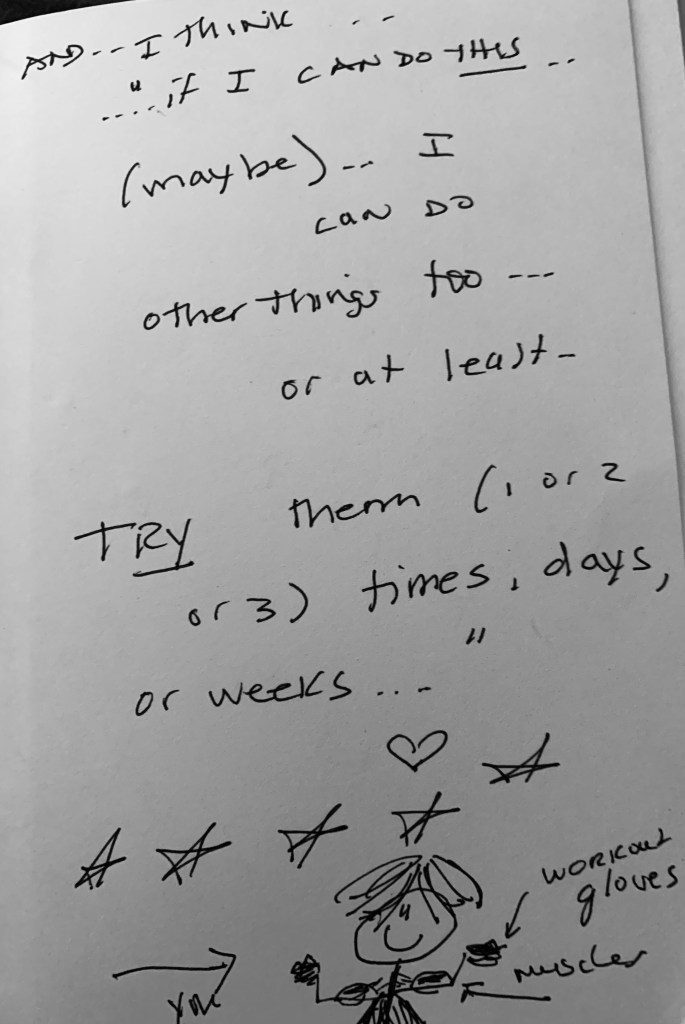 AND... I THINK ...
"....if I CAN DO THIS ..
(maybe)... I
CAN DO
other things too ---
or at least -
TRY them (1 or 2
or 3) times, days,
or weeks ...."
WORKOUT
gloves
muscles
YOU